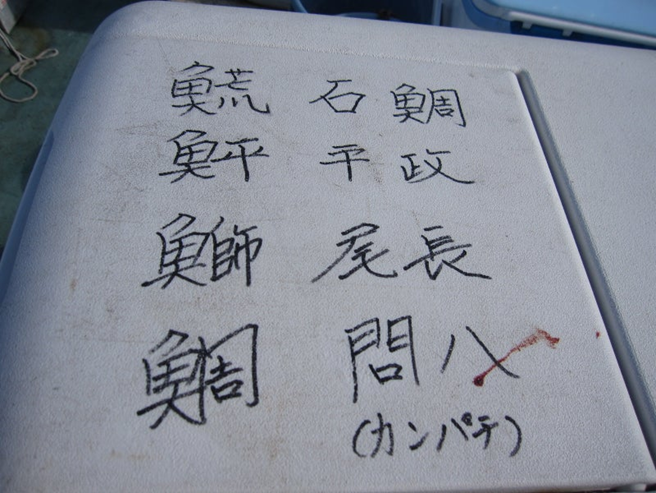 𩺊 石鯛
鮃 平政
鰤 尾長
鯛 問八
(カンパチ)